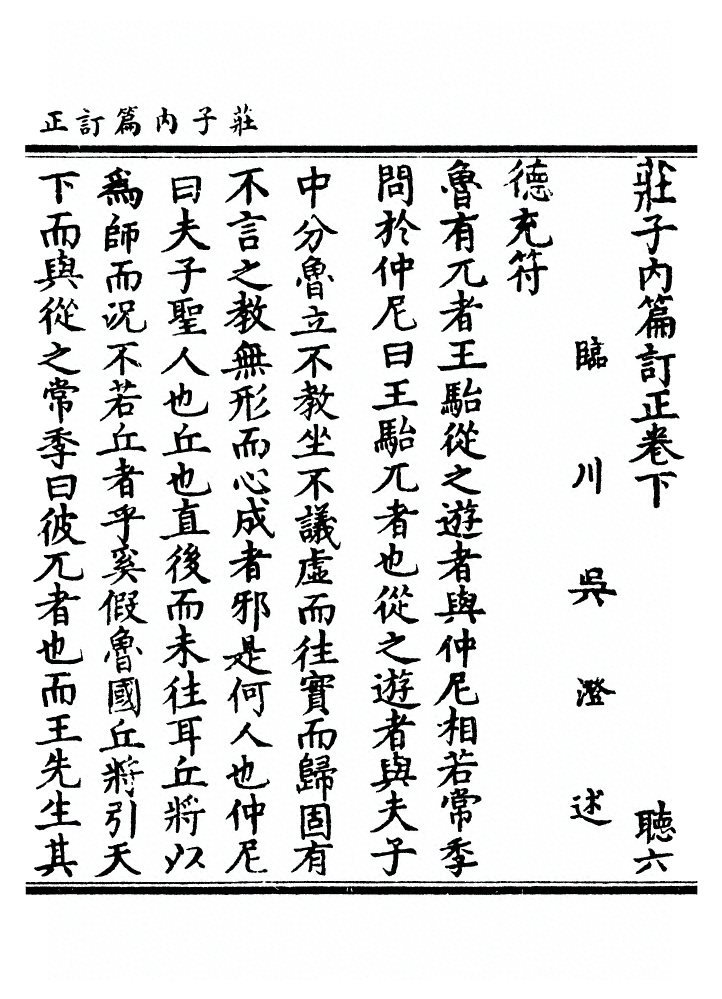 莊子內篇訂正
莊子內篇訂正卷下 聽六
臨川吳澄述
德充符
魯有兀者王駘從之遊者與仲尼相若常季
問於仲尼曰王駘兀者也從之遊者與夫子
中分魯立不教坐不議虛而往實而歸固有
不言之教無形而心成者邪是何人也仲尼
曰夫子聖人也丘也直後而未往耳丘將以
為師而況不若丘者乎奚假魯國丘將引天
下而與從之常季曰彼兀者也而王先生其